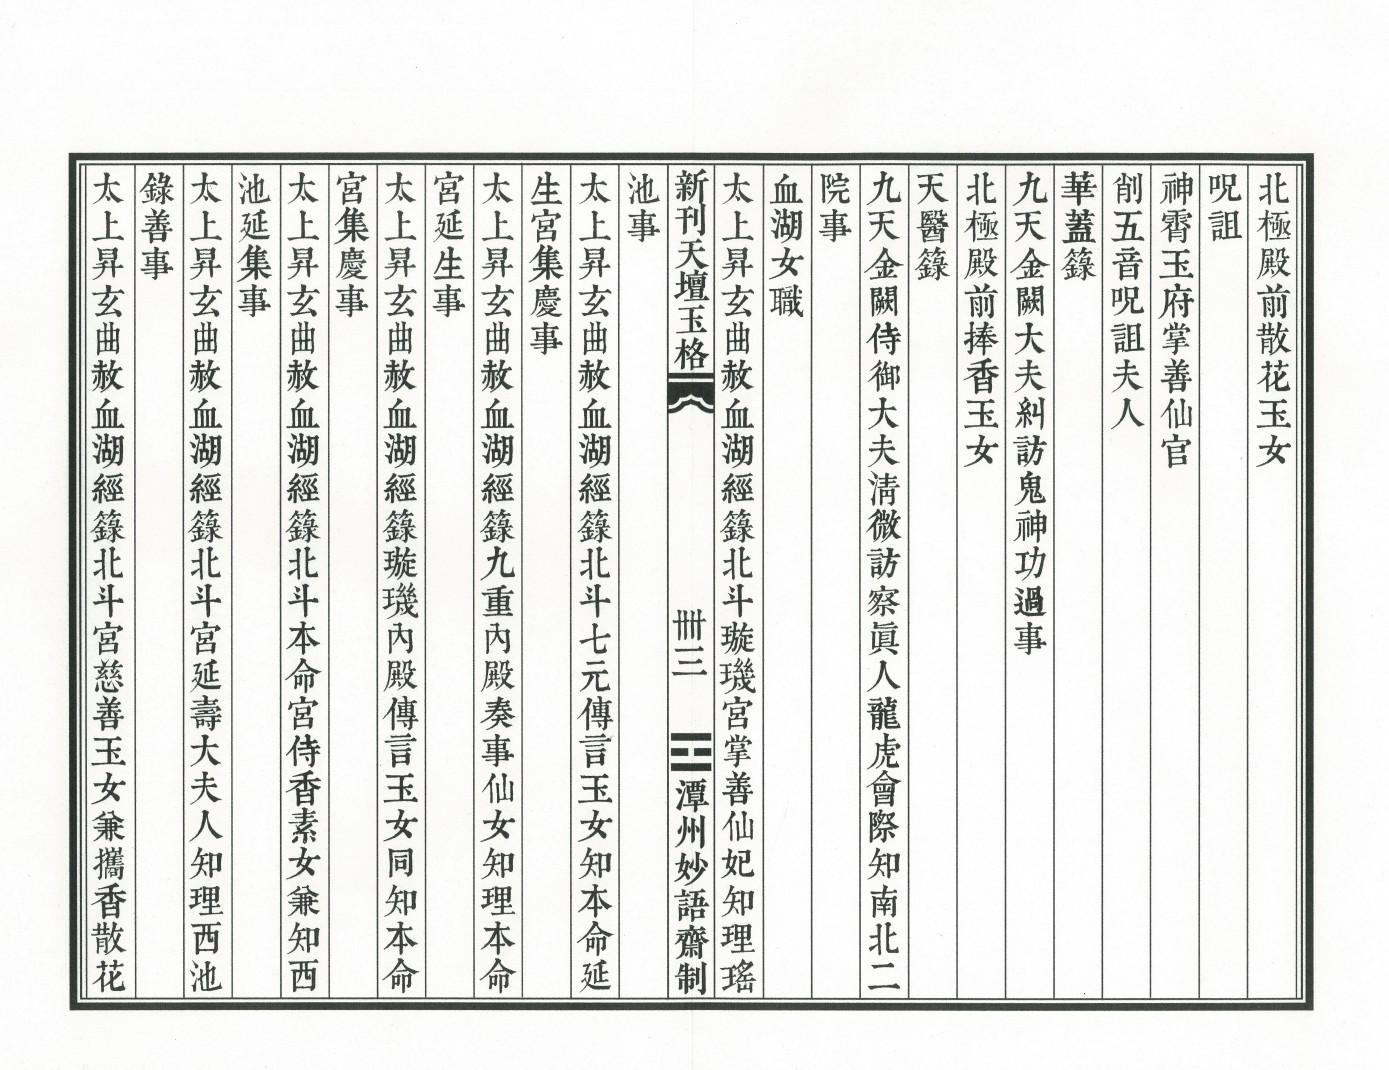 北極殿前散花玉女
呪詛
神霄玉府掌善仙官
削五音呪詛夫人
華蓋籙
九天金闕大夫糾訪鬼神功過事
北極殿前捧香玉女
天醫籙
九天金闕侍御大夫清微訪察眞人龍虎會際知南北二
院事
血湖女職
太上昇玄曲赦血湖經籙北斗璇璣宮掌善仙妃知理瑤
新刊天壇玉格
卌三
潭州妙語齋制
池事
太上昇玄曲赦血湖經籙北斗七元傳言玉女知本命延
生宮集慶事
太上昇玄曲赦血湖經籙九重內殿奏事仙女知理本命
宮延生事
太上昇玄曲赦血湖經籙璇璣內殿傳言玉女同知本命
宮集慶事
太上昇玄曲赦血湖經籙北斗本命宮侍香素女兼知西
池延集事
太上昇玄曲赦血湖經籙北斗宮延壽大夫人知理西池
錄善事
太上昇玄曲赦血湖經籙北斗宮慈善玉女兼攜香散花